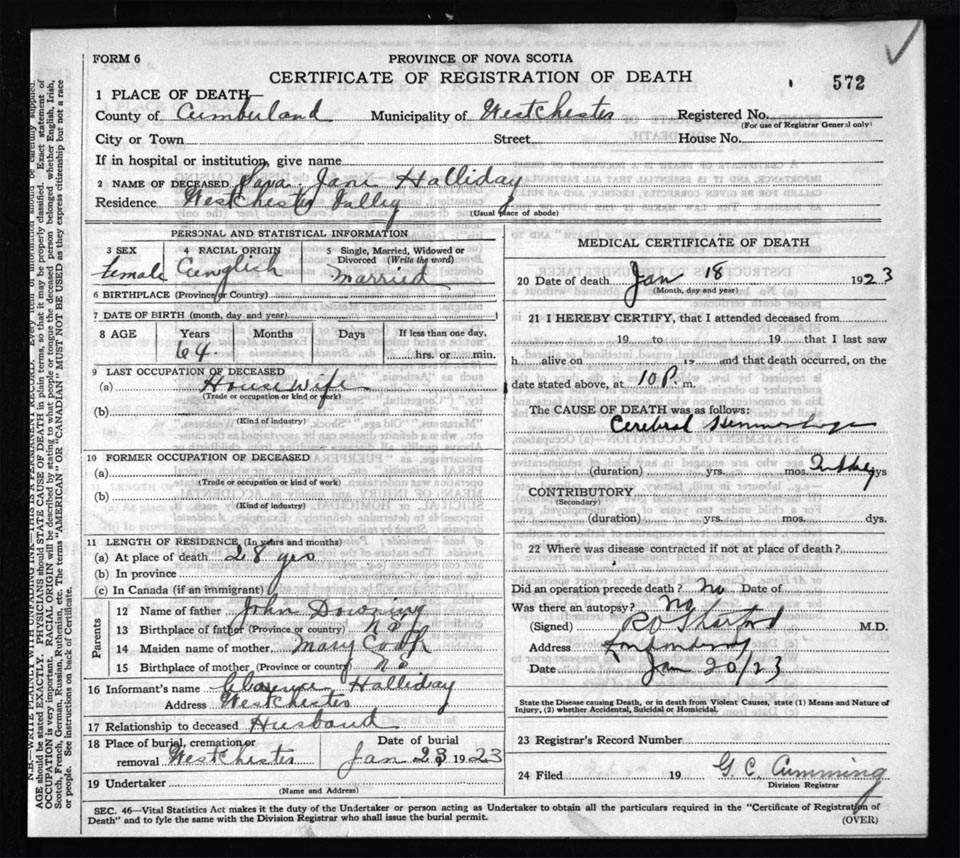 FORM 6
PROVINCE OF NOVA SCOTIA
CERTIFICATE OF REGISTRATION OF DEATH
572
1 PLACE OF DEATH—
County of Cumberland Municipality of Westchester Registered No.
(For use of Registrar General only)
City or Town Street House No.
If in hospital or institution, give name
2 NAME OF DECEASED Sara Jane Halliday
Residence Westchester Valley
(Usual place of abode)
PERSONAL AND STATISTICAL INFORMATION
3 SEX 4 RACIAL ORIGIN 5 Single, Married, Widowed or Divorced (Write the word)
female English married
6 BIRTHPLACE (Province or Country)
7 DATE OF BIRTH (month, day and year)
8 AGE Years Months Days If less than one day,
64 hrs. or min.
9 LAST OCCUPATION OF DECEASED
(a) House wife
(Trade or occupation or kind or work)
(b)
(Kind of industry)
10 FORMER OCCUPATION OF DECEASED
(a)
(Trade or occupation or kind of work)
(b)
(Kind of industry)
11 LENGTH OF RESIDENCE (In years and months)
(a) At place of death 28 yrs
(b) In province
(c) In Canada (if an immigrant)
Parents
12 Name of father John Downing
13 Birthplace of father (Province or country) N S
14 Maiden name of mother Mary
15 Birthplace of mother (Province or country) N S
16 Informant's name Clarence Halliday
Address Westchester
17 Relationship to deceased Husband
18 Place of burial, cremation or removal Westchester
Date of burial
Jan 23 1923
19 Undertaker
(Name and Address)
MEDICAL CERTIFICATE OF DEATH
20 Date of death Jan 18 1923
(Month, day and year)
21 I HEREBY CERTIFY, that I attended deceased from
19 to 19 that I last saw
h alive on 19 and that death occurred, on the
date stated above, at 10 P. m.
The CAUSE OF DEATH was as follows:
Cerebral Hemmorhage
(duration) yrs. mos. dys
CONTRIBUTORY
(Secondary)
(duration) yrs. mos. dys.
22 Where was disease contracted if not at place of death?
Did an operation precede death? No Date of
Was there an autopsy? No
(Signed) M.D.
Address
Date Jan 20/23
State the Disease causing Death, or in death from Violent Causes, state (1) Means and Nature of
Injury, (2) whether Accidental, Suicidal or Homicidal.
23 Registrar's Record Number
24 Filed 19 G. C. Cumming
Division Registrar
SEC. 46—Vital Statistics Act makes it the duty of the Undertaker or person acting as Undertaker to obtain all the particulars required in the "Certificate of Registration of
Death" and to fyle the same with the Division Registrar who shall issue the burial permit.
(OVER)
N.B.—WRITE PLAINLY WITH UNFADING INK—THIS IS A PERMANENT RECORD. Every item of information should be carefully supplied.
AGE should be stated EXACTLY. PHYSICIANS should STATE CAUSE OF DEATH in plain terms, so that it may be properly classified. Exact statement of
OCCUPATION is very important. RACIAL ORIGIN will be described by stating to what people or tongue the deceased person belonged whether English, Irish,
Scotch, French, German, Russian, Ruthenian, etc. The terms "AMERICAN" or "CANADIAN" MUST NOT BE USED as they express citizenship but not a race
or people. See instructions on back of Certificate.